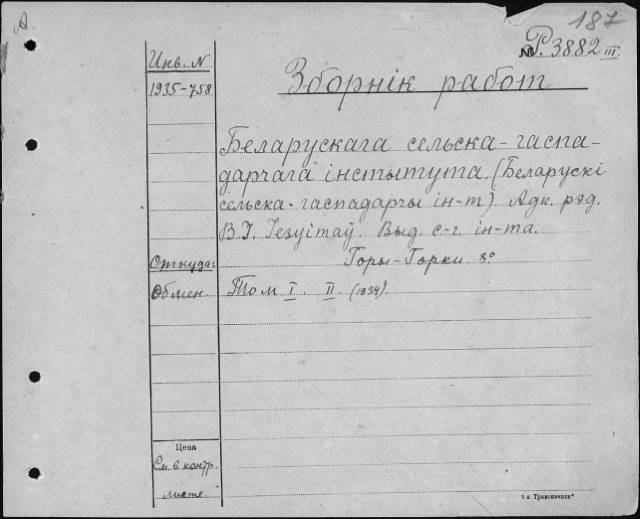 А.
187
№ Р. 3882 III
Инв. N
Зборнік работ
1935-758
Беларускага сельска-гаспа-
дарчага інстытута. (Беларускі
сельска-гаспадарчы ін-т) Адк. рэд.
В. І. Іезуітаў. Выд. с-г. ін-та.
Откуда:
Горы-Горки 8°
Обмен.
Том I. II. (1934).
Цена
См. в контр.
листе
Транспечать"